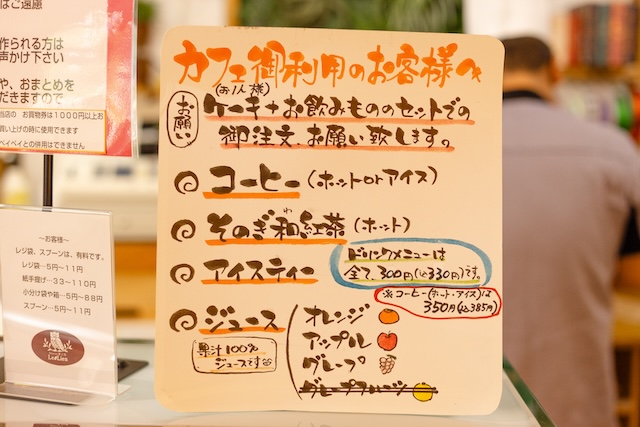 はご遠慮
作られる方は
声かけ下さい
や、おまとめを
だきますので
当店の お買物券は1000円以上お
買い上げの時に使用できます
ペイペイとの併用はできません
～お客様～
レジ袋、スプーンは、有料です。
レジ袋…5円～11円
紙手提げ…33～110円
小分け袋や箱…5円～88円
スプーン…5円～11円
カフェ御利用のお客様へ
(お1人様)
お願い
ケーキ+お飲みもののセットでの
御注文、お願い致します。
コーヒー(ホットorアイス)
そのぎ和紅茶(ホット)
わ
アイスティー
ドリンクメニューは
全て、300円(込330円)です。
※コーヒー(ホット・アイス)は
350円(込385円)
ジュース
果汁100%
ジュースです
オレンジ
アップル
グレープ
グレープフルーツ